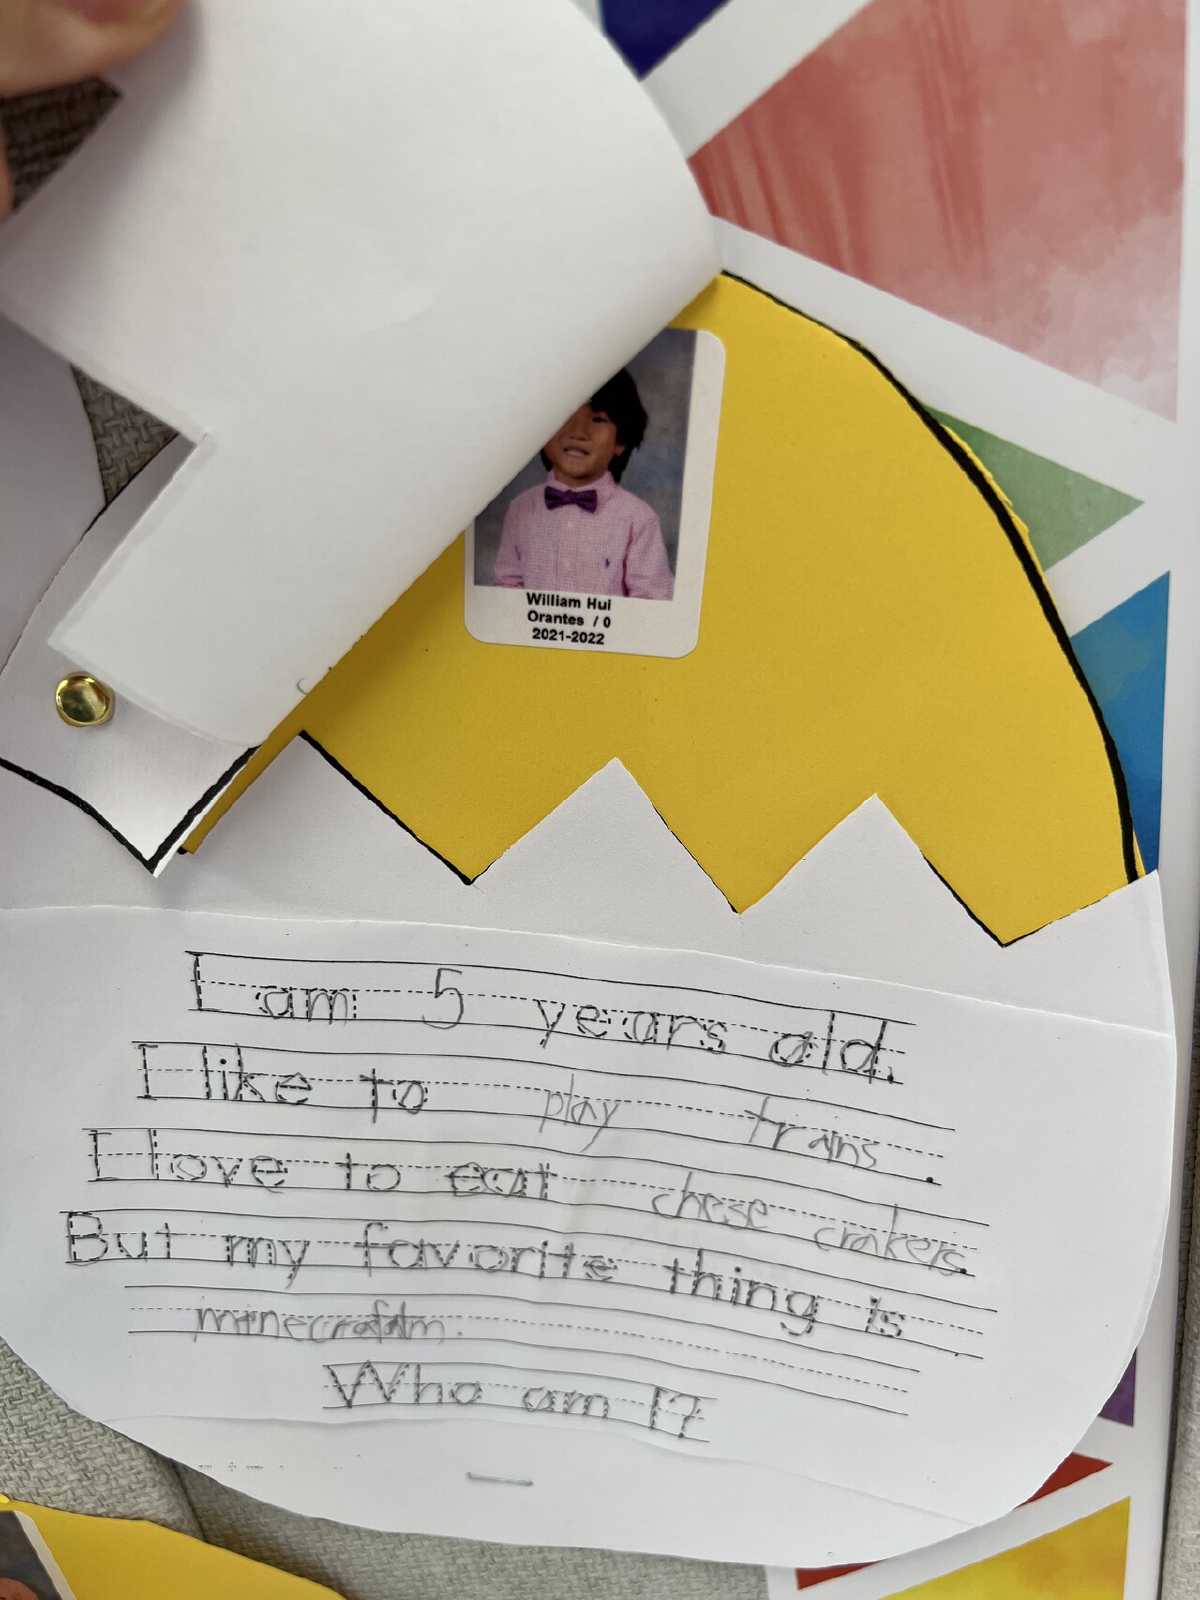 William Hui
Orantes / 0
2021-2022
I am 5 years old.
I like to play trains.
I love to eat chese crakers.
But my favorite thing is
Who am I?